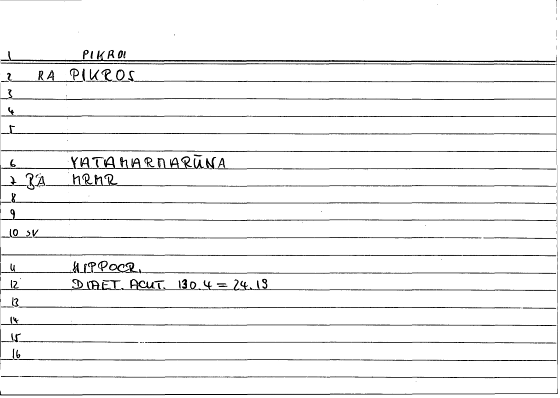 1 PIKROI
2 RA PIKROS
3
4
5
6 YATAMARMARŪNA
7 MRMR
8
9
10 SV
11 HIPPOCR.
12 DIAET. ACUT. 130.4 = 24.13
13
14
15
16